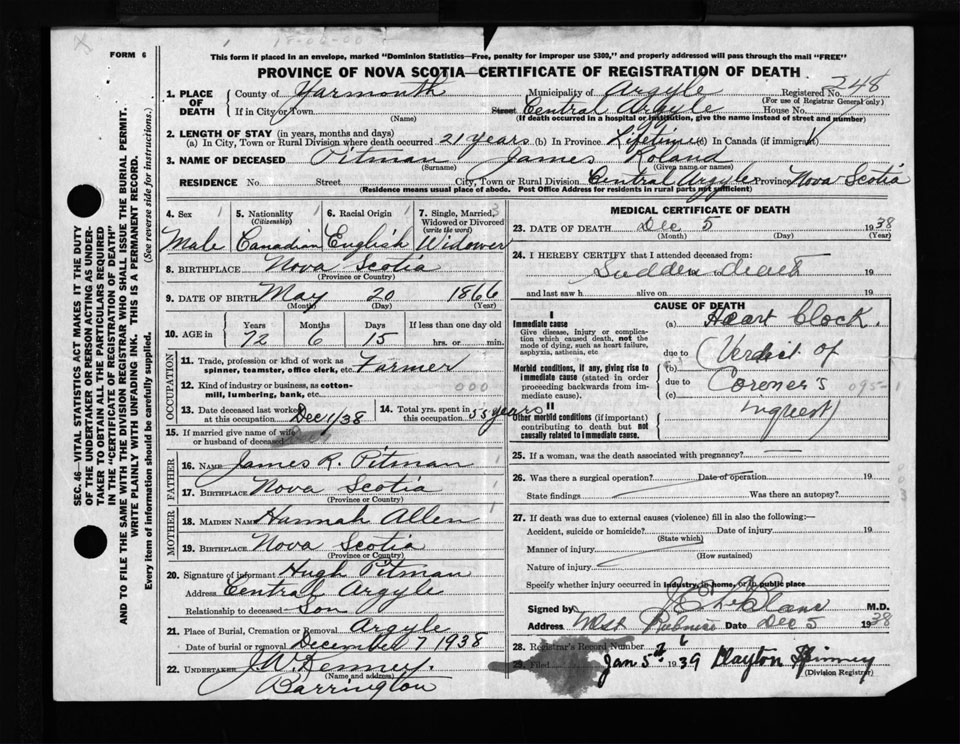 FORM 6
This form if placed in an envelope, marked "Dominion Statistics—Free, penalty for improper use $300," and properly addressed will pass through the mail "FREE"
PROVINCE OF NOVA SCOTIA—CERTIFICATE OF REGISTRATION OF DEATH
248
1. PLACE OF DEATH
County of Yarmouth Municipality of Argyle Registered No.
(For use of Registrar General only)
If in City or Town Street Central Argyle House No.
(Name) (If death occurred in a hospital or institution, give the name instead of street and number)
2. LENGTH OF STAY (in years, months and days)
(a) In City, Town or Rural Division where death occurred 21 years (b) In Province Lifetime (c) In Canada (if immigrant)
3. NAME OF DECEASED Pitman James Roland
(Surname) (Given name or names)
RESIDENCE No. Street City, Town or Rural Division Central Argyle Province Nova Scotia
(Residence means usual place of abode. Post Office Address for residents in rural parts not sufficient)
4. Sex 5. Nationality (Citizenship) 6. Racial Origin 7. Single, Married, Widowed or Divorced (write the word)
Male Canadian English Widower
8. BIRTHPLACE Nova Scotia
(Province or Country)
9. DATE OF BIRTH May 20 1866
(Month) (Day) (Year)
10. AGE in Years Months Days If less than one day old
72 6 15 hrs. or min.
OCCUPATION
11. Trade, profession or kind of work as spinner, teamster, office clerk, etc. Farmer
12. Kind of industry or business, as cotton-mill, lumbering, bank, etc. 000
13. Date deceased last worked at this occupation Dec 1/38
14. Total yrs. spent in this occupation 55 years
15. If married give name of wife or husband of deceased
FATHER
16. NAME James R. Pitman
17. BIRTHPLACE Nova Scotia
(Province or Country)
MOTHER
18. MAIDEN NAME Hannah Allen
19. BIRTHPLACE Nova Scotia
(Province or Country)
20. Signature of informant Hugh Pitman
Address Central Argyle
Relationship to deceased Son
21. Place of Burial, Cremation or Removal Argyle
Date of burial or removal December 7 1938
22. UNDERTAKER J.W. Kenney.
(Name and address)
Barrington
MEDICAL CERTIFICATE OF DEATH
23. DATE OF DEATH Dec 5 1938
(Month) (Day) (Year)
24. I HEREBY CERTIFY that I attended deceased from:
Sudden Death 19
and last saw h alive on 19
CAUSE OF DEATH
I
Immediate cause (a) Heart block.
Give disease, injury or complication which caused death, not the mode of dying, such as heart failure, asphyxia, asthenia, etc.
due to (Verdict of
Morbid conditions, if any, giving rise to immediate cause (stated in order proceeding backwards from immediate cause).
(b) due to Coroner's
095-1
(c) inquest)
II
Other morbid conditions (if important) contributing to death but not causally related to immediate cause.
25. If a woman, was the death associated with pregnancy?
26. Was there a surgical operation? Date of operation 19
State findings Was there an autopsy?
27. If death was due to external causes (violence) fill in also the following:—
Accident, suicide or homicide? Date of injury 19
(State which)
Manner of injury
(How sustained)
Nature of injury
Specify whether injury occurred in industry, in home, or in public place
Signed by LeBlanc M.D.
Address West Pubnico Date Dec 5 1938
28. Registrar's Record Number 6
29. Filed Jan 5th 1939 Clayton Spinney
(Division Registrar)
SEC. 46—VITAL STATISTICS ACT MAKES IT THE DUTY
OF THE UNDERTAKER OR PERSON ACTING AS UNDERTAKER TO OBTAIN ALL THE PARTICULARS REQUIRED
IN THE "CERTIFICATE OF REGISTRATION OF DEATH"
AND TO FILE THE SAME WITH THE DIVISION REGISTRAR WHO SHALL ISSUE THE BURIAL PERMIT.
WRITE PLAINLY WITH UNFADING INK. THIS IS A PERMANENT RECORD.
Every item of information should be carefully supplied. (See reverse side for instructions.)